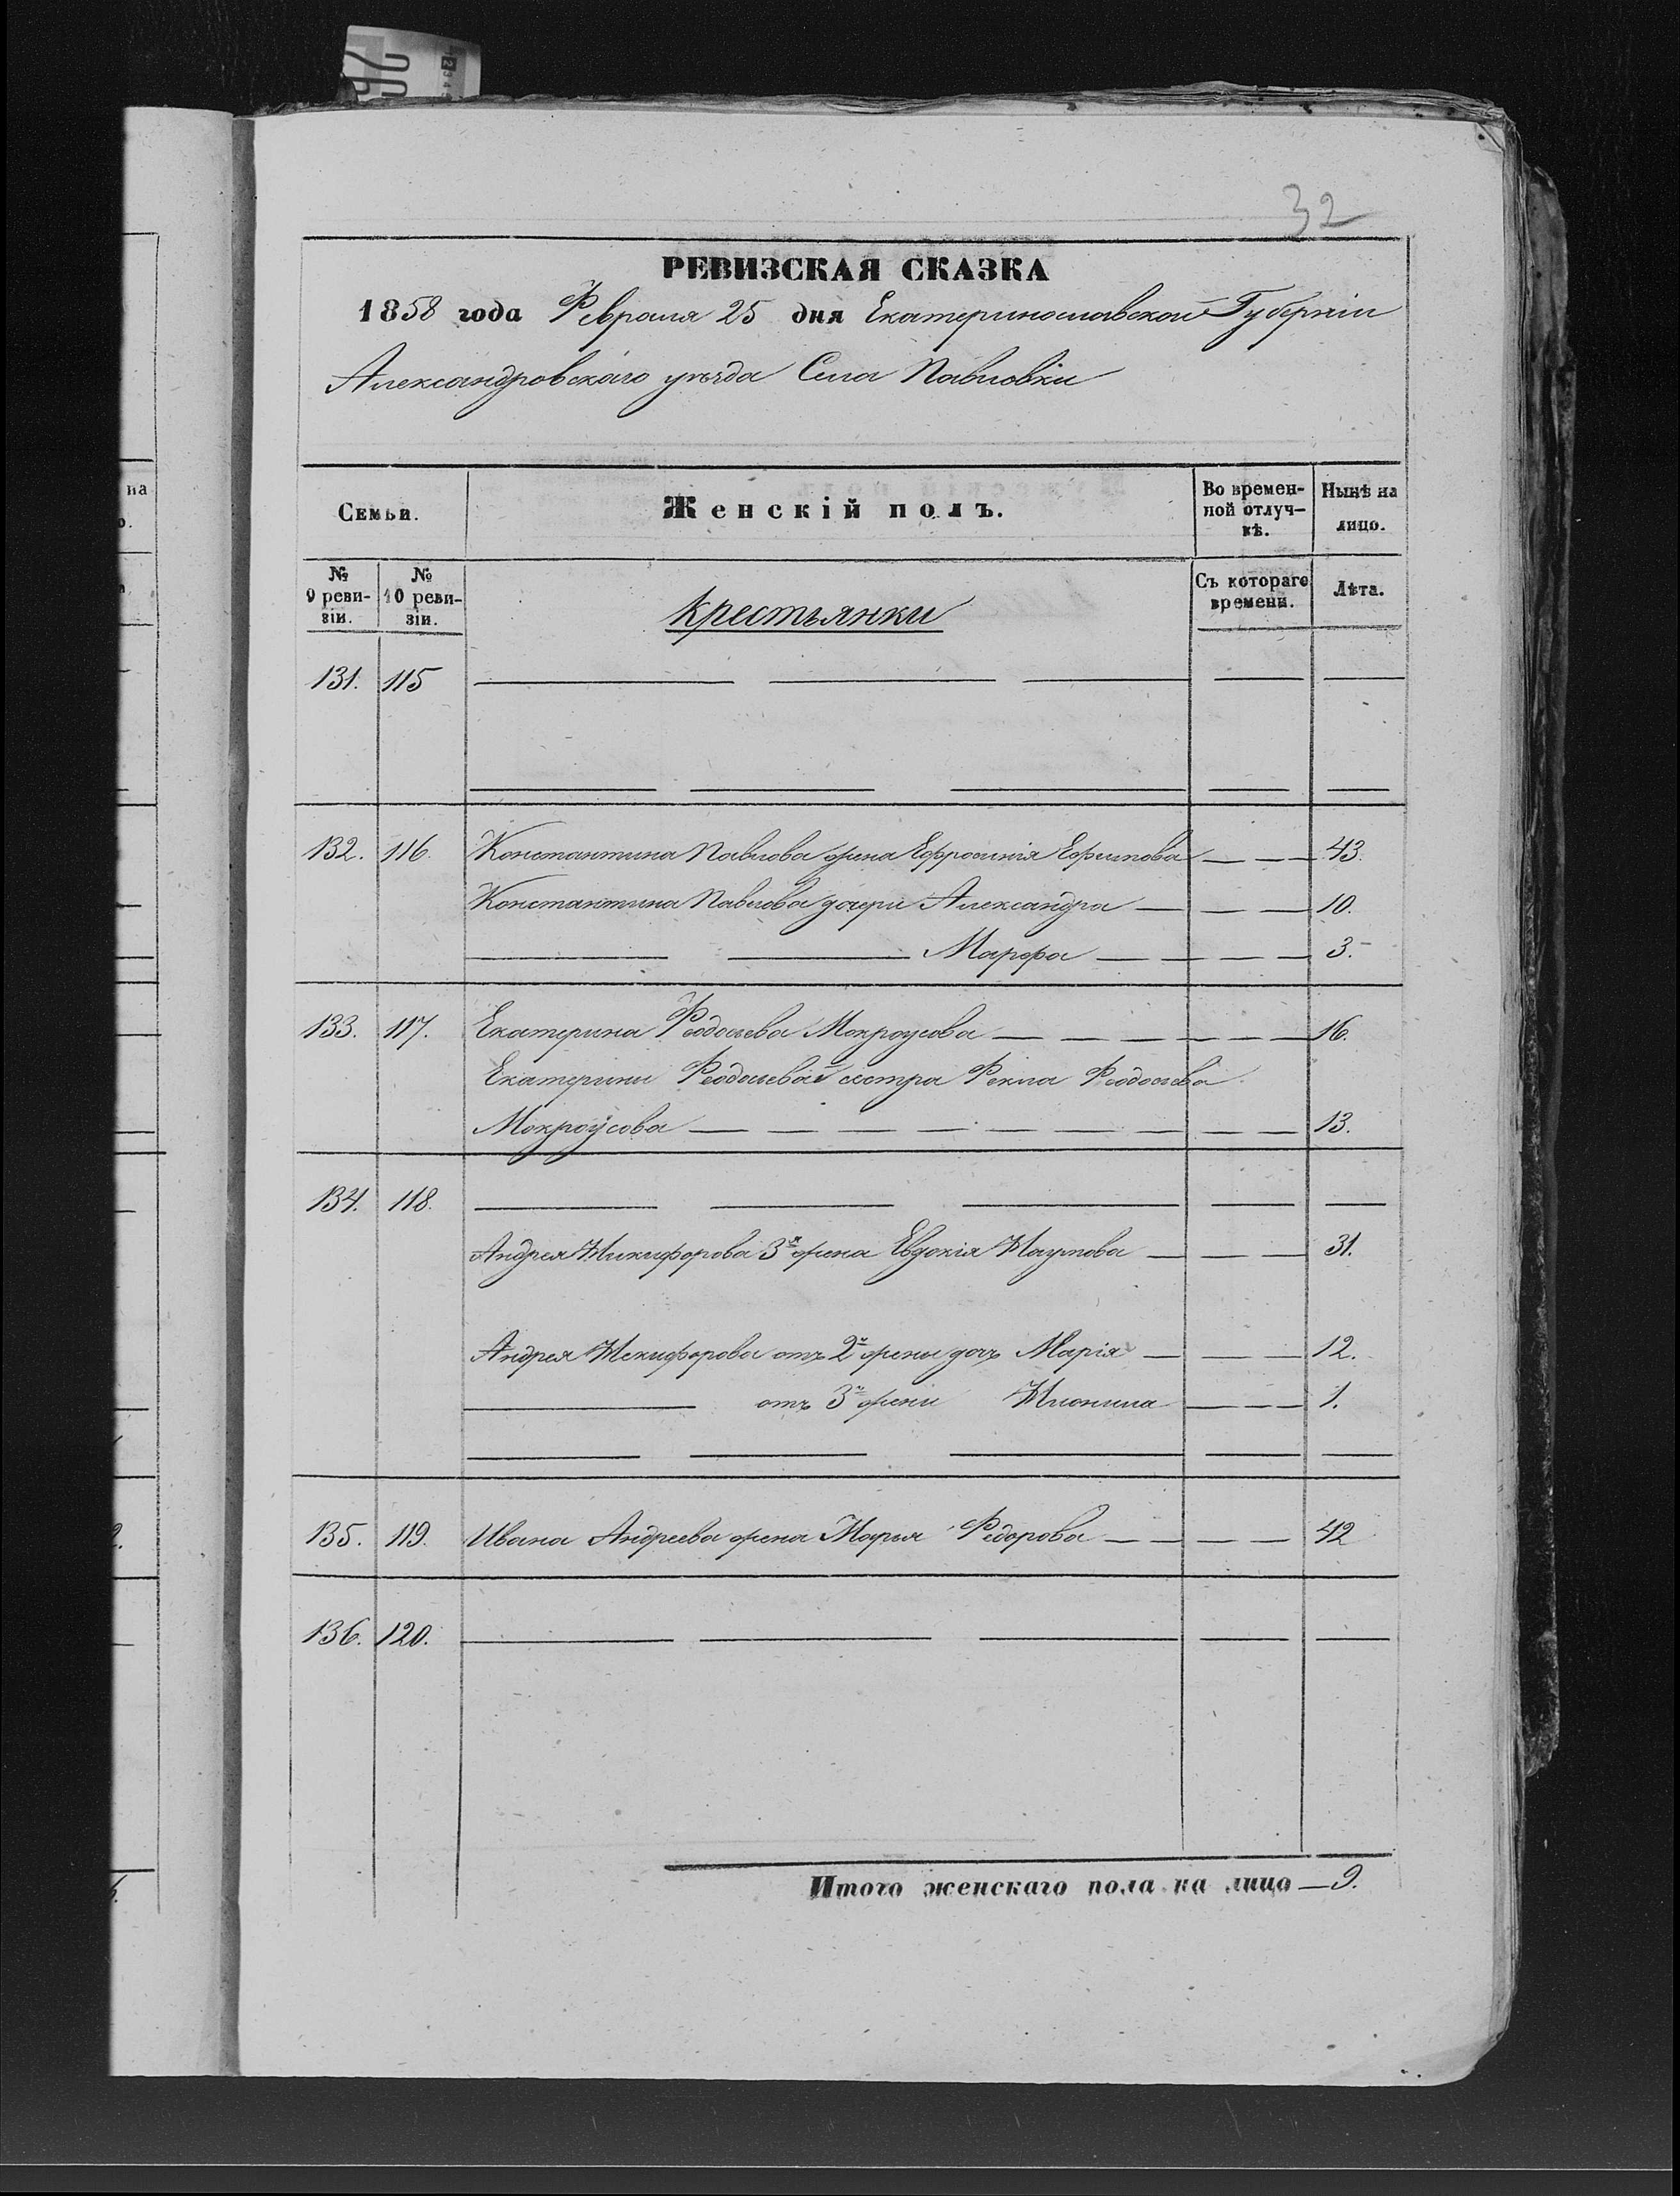 32
РЕВИЗСКАЯ СКАЗКА
1858 года Февраля 25 дня Екатеринославской Губерніи
Александровскаго уѣзда Села Павловки
Семьи. Женскій полъ. Во времен- Нынѣ на
ной отлуч- лицо.
кѣ.
№ № Съ котораго Лѣта.
9 реви- 10 реви- времени.
зіи. зіи.
крестьянки
131. 115
132. 116. Константина Павлова жена Ефросинія Ефимова 43.
Константина Павлова дочери Александра 10.
Марфа 3.
133. 117. Екатерина Феодосьева Мокроусова 16.
Екатерины Феодосьевой сестра Фекла Феодосьева
Мокроусова 13.
134. 118.
Андрея Никифорова 3я жена Евдокія Наумова 31.
Андрея Никифорова отъ 2й жены дочь Марія 12.
отъ 3й жены Неонила 1.
135. 119. Ивана Андреева жена Марья Федорова 42
136. 120.
Итого женскаго пола на лицо — 9.
на